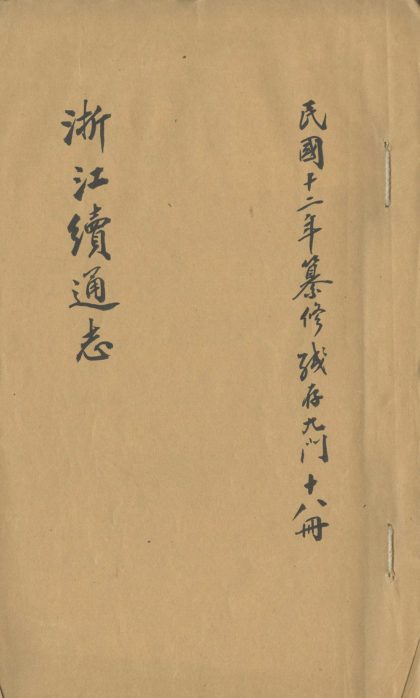 民國十二年纂修殘存九門十八冊
浙江續通志